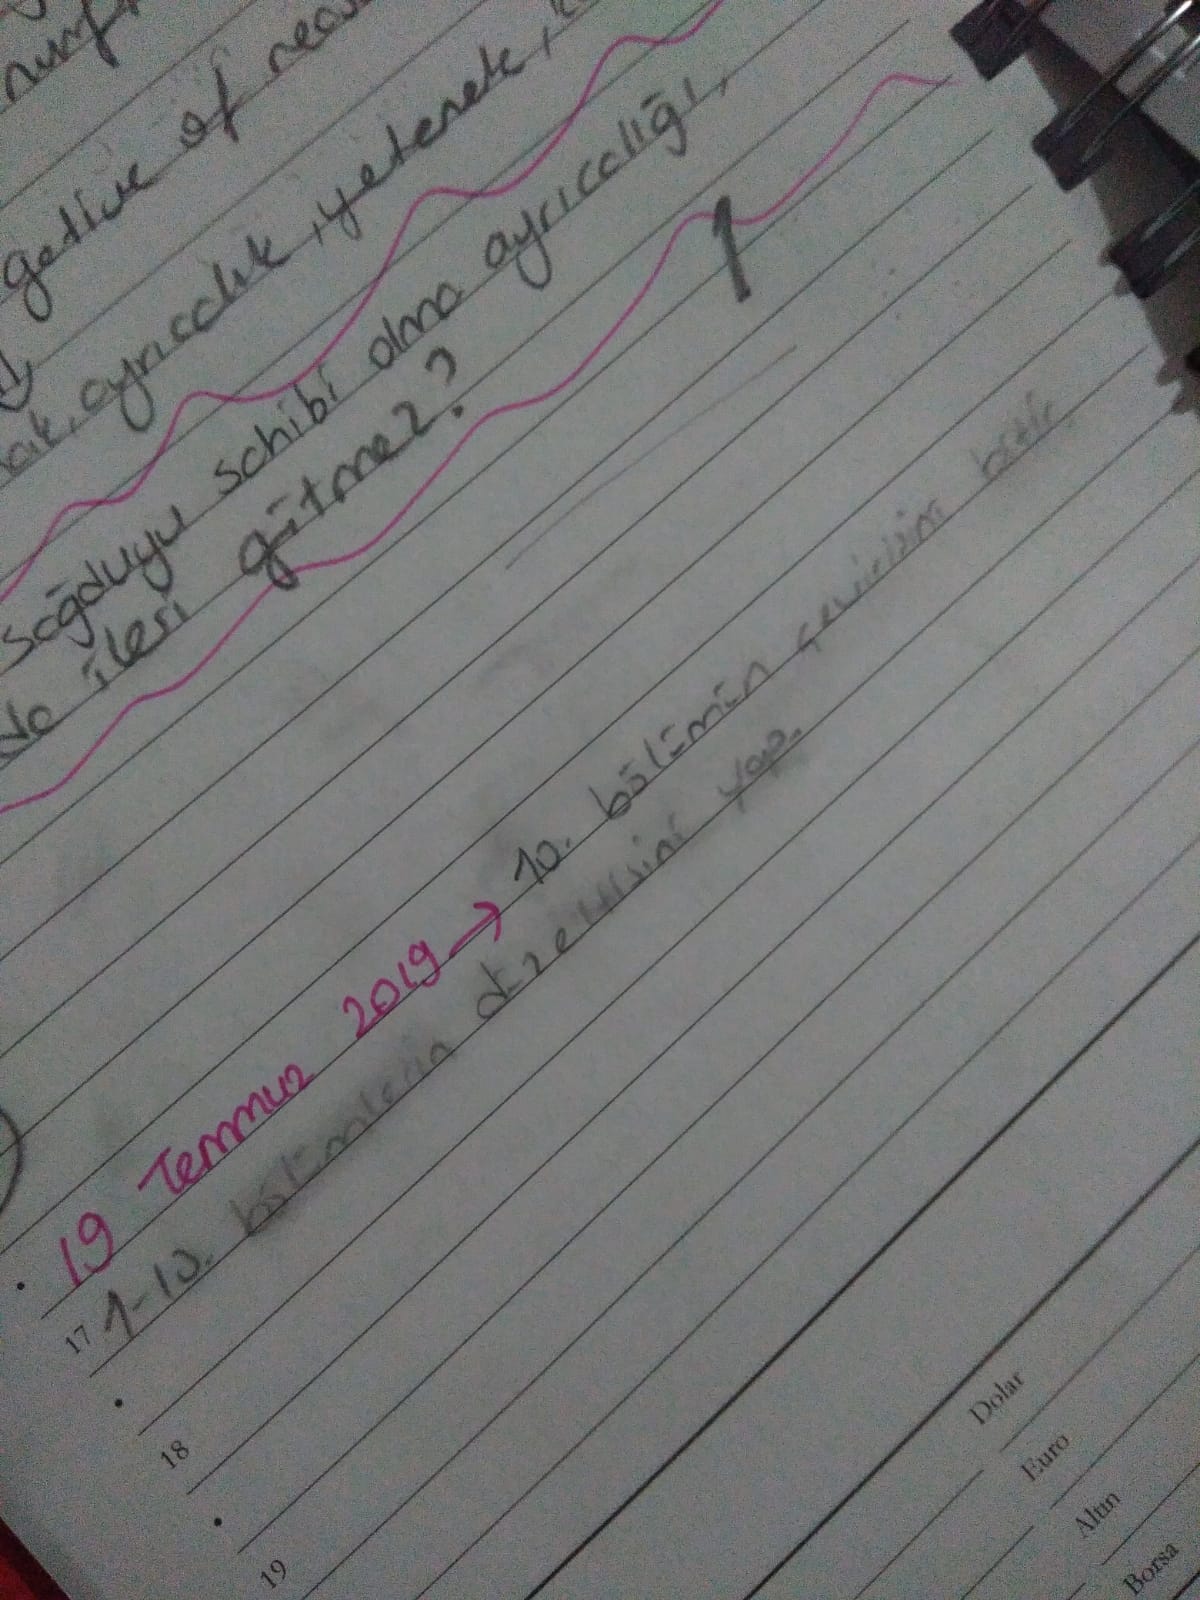 gative of reas
ayrıcalık, yetenek,
sağduyu sahibi olma ayrıcalığı,
da ilesi gütmez?
1
19 Temmuz 2019 → 10. bölümün çevirisini bitir.
17 1-10. bölümlerin düzeltisini yap.
18
19
Dolar
Euro
Altın
Borsa